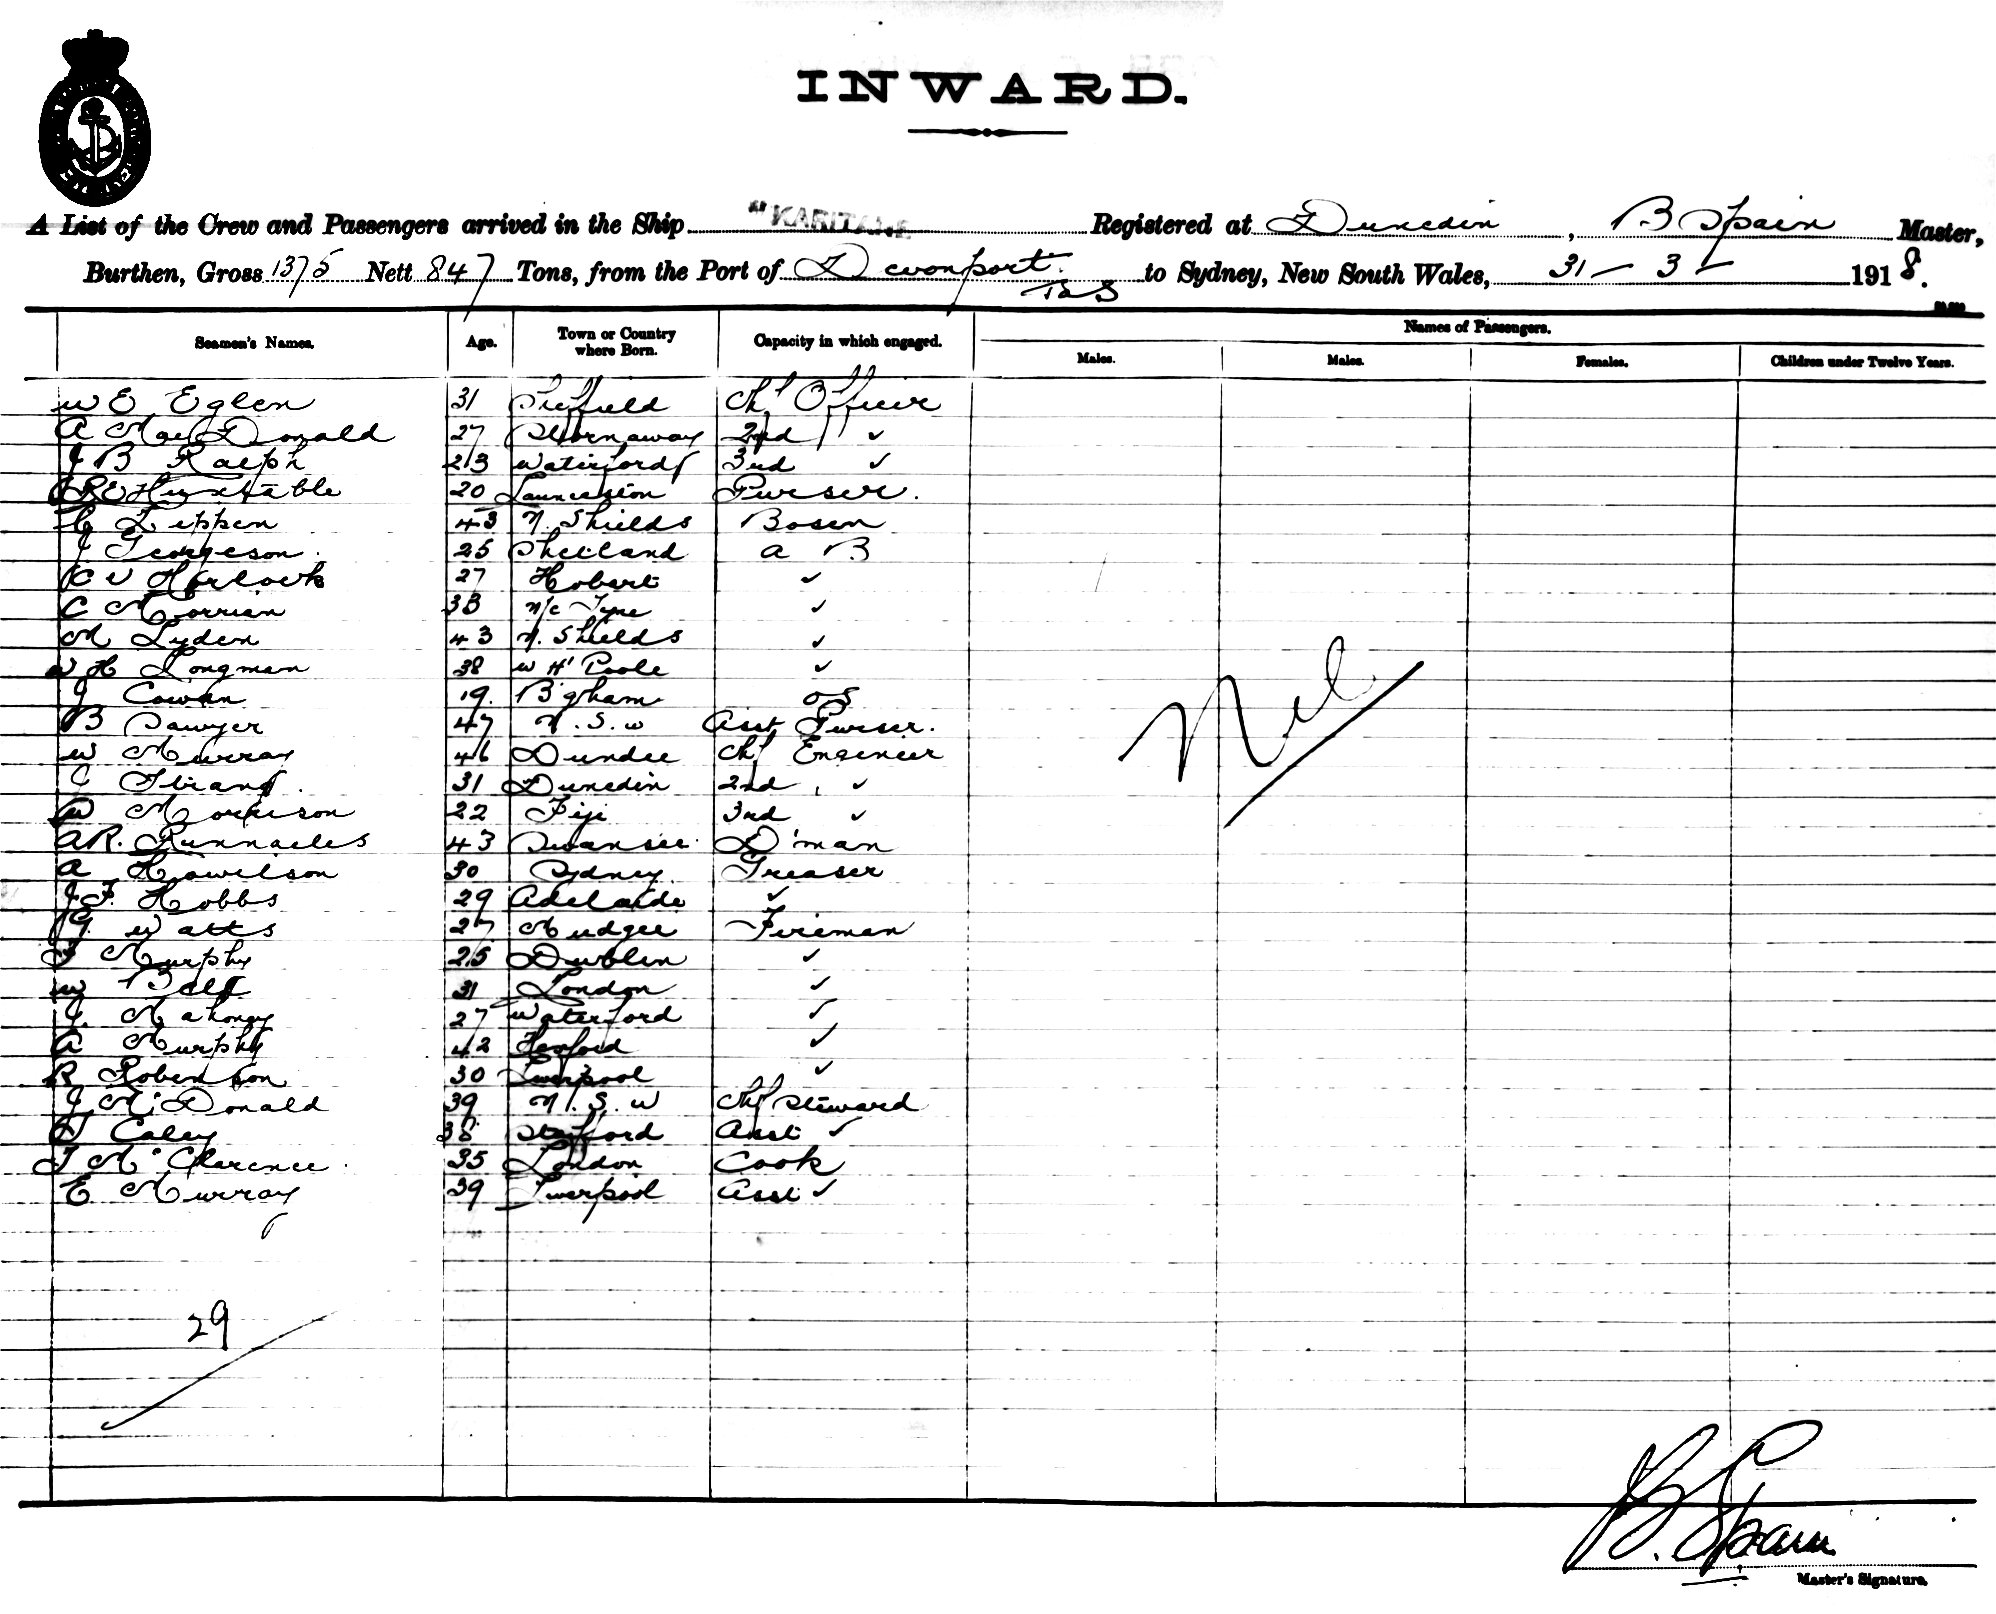 INWARD.
A List of the Crew and Passengers arrived in the Ship "KARITANE Registered at Dunedin, B Spain Master,
Burthen, Gross 1375 Nett 847 Tons, from the Port of Devonport Tas to Sydney, New South Wales, 31 - 3 - 1918.
Seamen's Names. Age. Town or Country where Born. Capacity in which engaged. Names of Passengers.
Males. Males. Females. Children under Twelve Years.
W E Eglen 31 Sheffield Chf Officer
A MacDonald 27 Stornaway 2nd ✓
J B Ralph 23 Waterford 3rd ✓
R E Huxtable 20 Launceston Purser.
C Zeppen 43 N. Shields Bosen
J Georgeson 25 Shetland A B
C V Horlock 27 Hobart ✓
C Morrian 33 N/c Tyne ✓
M Lyden 43 N. Shields ✓
W H Longman 38 W H' Poole ✓
J Cowan 19. B'gham OS
B Sawyer 47 N.S.W Asst Purser.
W Murray 46 Dundee Chf Engeneer
C Strang 31 Dunedin 2nd ✓
W Morrison 22 Fiji 3rd ✓
A R. Runnacles 43 Swansee D'man
A Howilson 30 Sydney Greaser
J F. Hobbs 29 Adelaide ✓
G Watts 27 Mudgee Fireman
T Murphy 25 Dublin ✓
W Belf 31 London ✓
J. Mahoney 27 Waterford ✓
A Murphy 42 ✓
R Robinson 30 Liverpool ✓
J McDonald 39 N.S.W Chf Steward
T Caley 38 Stafford Asst ✓
T McClarence 35 London Cook
E Murray 39 Liverpool Asst ✓
Nil
29
B. Spain
Master's Signature.